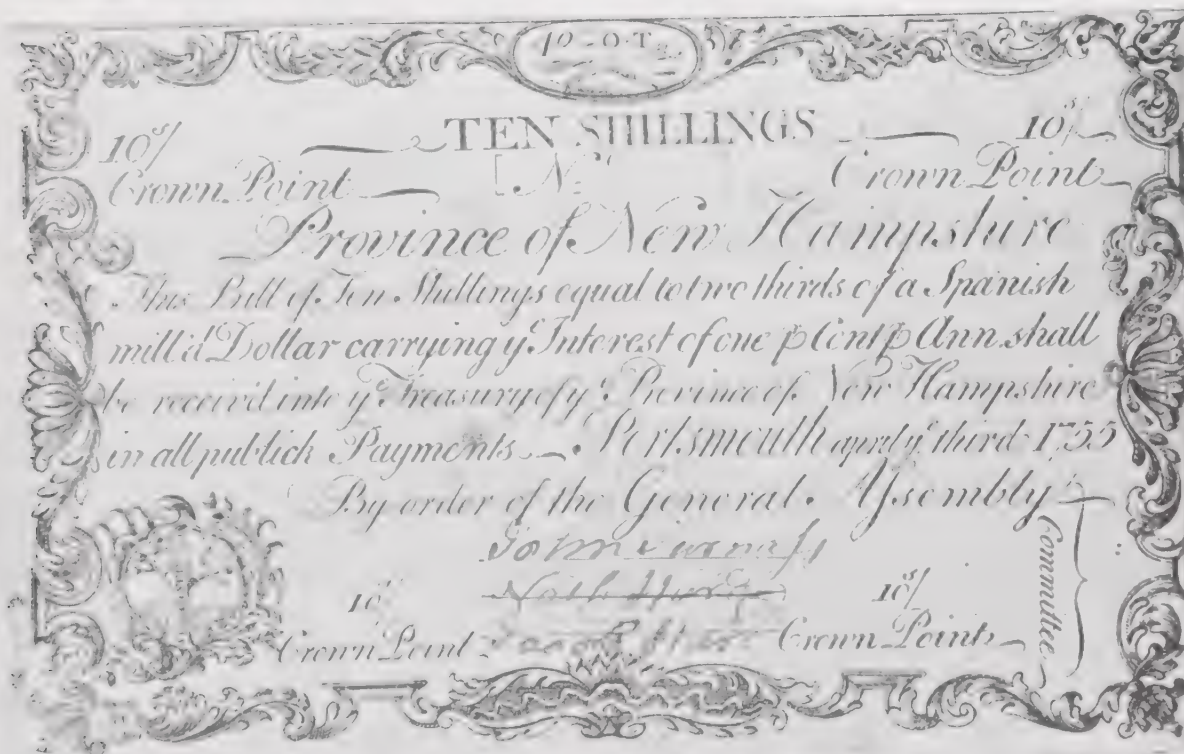 10-0-T
TEN SHILLINGS
10s/ 10s/
Crown Point [No Crown Point
Province of New Hampshire
This Bill of Ten Shillings equal to two thirds of a Spanish
mill'd Dollar carrying ye Interest of one p Cent p Ann. shall
be receiv'd into ye Treasury of ye Province of New Hampshire
in all publick Payments. Portsmouth april ye third 1755
By order of the General Assembly
10s/ 10s/
Crown Point Crown Point
Committee